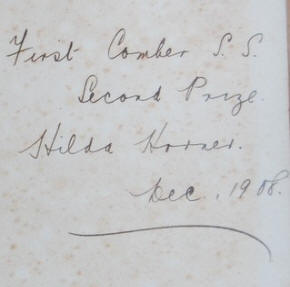 First Comber S. S.
Second Prize.
Hilda Horner.
Dec. 1908.